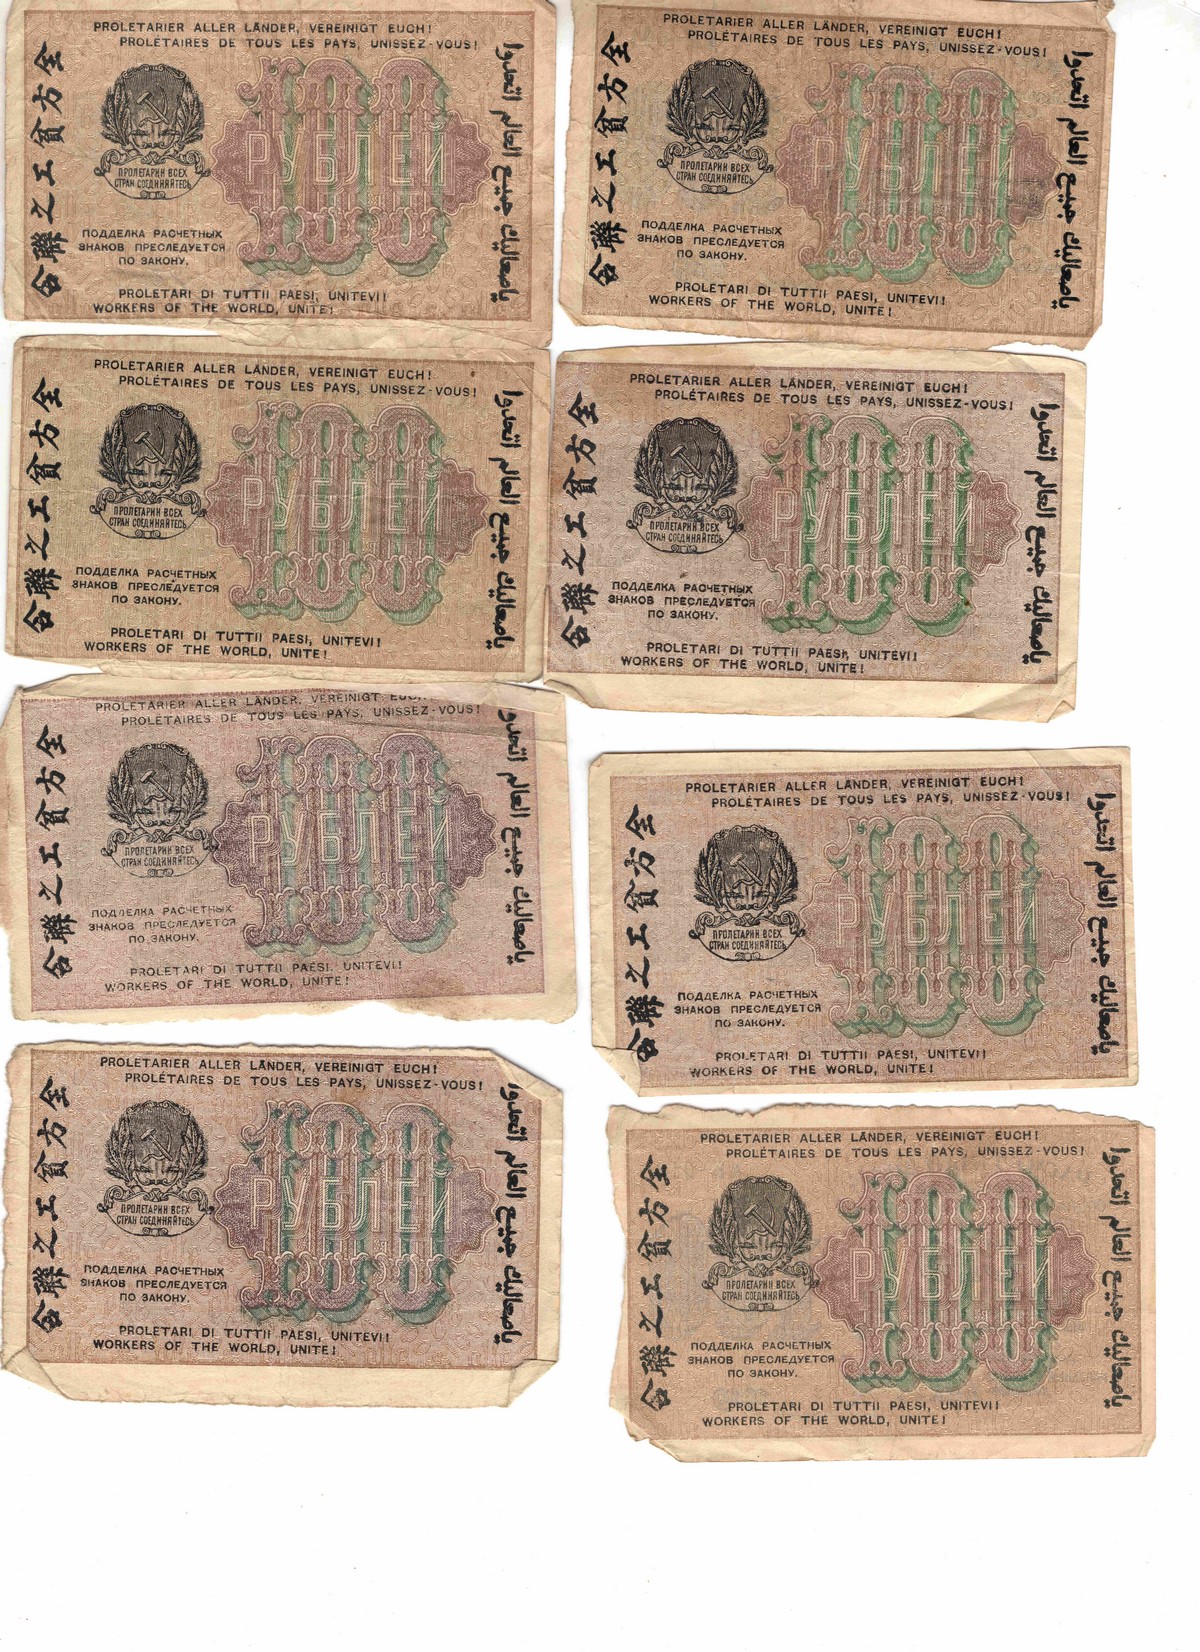 PROLETARIER ALLER LÄNDER, VEREINIGT EUCH!
PROLÉTAIRES DE TOUS LES PAYS, UNISSEZ-VOUS!
全方貧工之聯合
ПРОЛЕТАРИИ ВСЕХ
СТРАН СОЕДИНЯЙТЕСЬ
100
РУБЛЕЙ
ياصعاليك جميع العالم اتحدوا
ПОДДЕЛКА РАСЧЕТНЫХ
ЗНАКОВ ПРЕСЛЕДУЕТСЯ
ПО ЗАКОНУ.
PROLETARI DI TUTTII PAESI, UNITEVI!
WORKERS OF THE WORLD, UNITE!
PROLETARIER ALLER LÄNDER, VEREINIGT EUCH!
PROLÉTAIRES DE TOUS LES PAYS, UNISSEZ-VOUS!
全方貧工之聯合
ПРОЛЕТАРИИ ВСЕХ
СТРАН СОЕДИНЯЙТЕСЬ
100
РУБЛЕЙ
ياصعاليك جميع العالم اتحدوا
ПОДДЕЛКА РАСЧЕТНЫХ
ЗНАКОВ ПРЕСЛЕДУЕТСЯ
ПО ЗАКОНУ.
PROLETARI DI TUTTII PAESI, UNITEVI!
WORKERS OF THE WORLD, UNITE!
PROLETARIER ALLER LÄNDER, VEREINIGT EUCH!
PROLÉTAIRES DE TOUS LES PAYS, UNISSEZ-VOUS!
全方貧工之聯合
ПРОЛЕТАРИИ ВСЕХ
СТРАН СОЕДИНЯЙТЕСЬ
100
РУБЛЕЙ
ياصعاليك جميع العالم اتحدوا
ПОДДЕЛКА РАСЧЕТНЫХ
ЗНАКОВ ПРЕСЛЕДУЕТСЯ
ПО ЗАКОНУ.
PROLETARI DI TUTTII PAESI, UNITEVI!
WORKERS OF THE WORLD, UNITE!
PROLETARIER ALLER LÄNDER, VEREINIGT EUCH!
PROLÉTAIRES DE TOUS LES PAYS, UNISSEZ-VOUS!
全方貧工之聯合
ПРОЛЕТАРИИ ВСЕХ
СТРАН СОЕДИНЯЙТЕСЬ
100
РУБЛЕЙ
ياصعاليك جميع العالم اتحدوا
ПОДДЕЛКА РАСЧЕТНЫХ
ЗНАКОВ ПРЕСЛЕДУЕТСЯ
ПО ЗАКОНУ.
PROLETARI DI TUTTII PAESI, UNITEVI!
WORKERS OF THE WORLD, UNITE!
PROLETARIER ALLER LÄNDER, VEREINIGT
PROLÉTAIRES DE TOUS LES PAYS, UNISSEZ-VOUS!
全方貧工之聯合
ПРОЛЕТАРИИ ВСЕХ
СТРАН СОЕДИНЯЙТЕСЬ
100
РУБЛЕЙ
ياصعاليك جميع العالم اتحدوا
ПОДДЕЛКА РАСЧЕТНЫХ
ЗНАКОВ ПРЕСЛЕДУЕТСЯ
ПО ЗАКОНУ.
PROLETARI DI TUTTII PAESI, UNITEVI!
WORKERS OF THE WORLD, UNITE!
PROLETARIER ALLER LÄNDER, VEREINIGT EUCH!
PROLÉTAIRES DE TOUS LES PAYS, UNISSEZ-VOUS!
全方貧工之聯合
ПРОЛЕТАРИИ ВСЕХ
СТРАН СОЕДИНЯЙТЕСЬ
100
РУБЛЕЙ
ياصعاليك جميع العالم اتحدوا
ПОДДЕЛКА РАСЧЕТНЫХ
ЗНАКОВ ПРЕСЛЕДУЕТСЯ
ПО ЗАКОНУ.
PROLETARI DI TUTTII PAESI, UNITEVI!
WORKERS OF THE WORLD, UNITE!
PROLETARIER ALLER LÄNDER, VEREINIGT EUCH!
PROLÉTAIRES DE TOUS LES PAYS, UNISSEZ-VOUS!
全方貧工之聯合
ПРОЛЕТАРИИ ВСЕХ
СТРАН СОЕДИНЯЙТЕСЬ
100
РУБЛЕЙ
ياصعاليك جميع العالم اتحدوا
ПОДДЕЛКА РАСЧЕТНЫХ
ЗНАКОВ ПРЕСЛЕДУЕТСЯ
ПО ЗАКОНУ.
PROLETARI DI TUTTII PAESI, UNITEVI!
WORKERS OF THE WORLD, UNITE!
PROLETARIER ALLER LÄNDER, VEREINIGT EUCH!
PROLÉTAIRES DE TOUS LES PAYS, UNISSEZ-VOUS!
全方貧工之聯合
ПРОЛЕТАРИИ ВСЕХ
СТРАН СОЕДИНЯЙТЕСЬ
100
РУБЛЕЙ
ياصعاليك جميع العالم اتحدوا
ПОДДЕЛКА РАСЧЕТНЫХ
ЗНАКОВ ПРЕСЛЕДУЕТСЯ
ПО ЗАКОНУ.
PROLETARI DI TUTTII PAESI, UNITEVI!
WORKERS OF THE WORLD, UNITE!